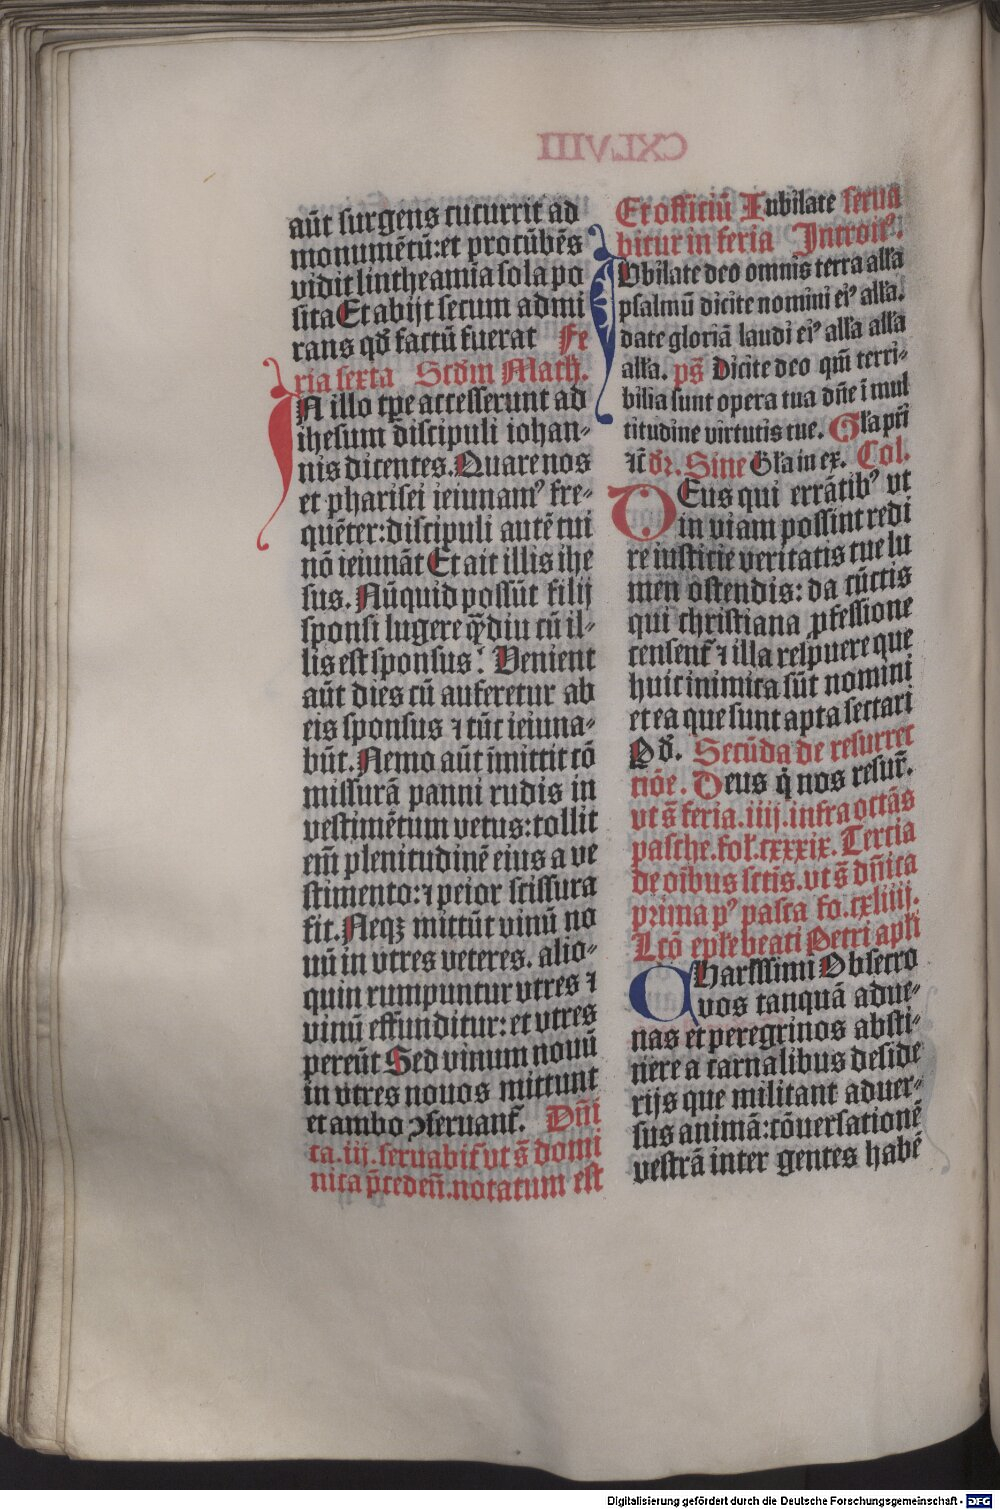 aūt surgens cucurrit ad
monumētū: et procūbēs
vidit lintheamia sola po
sita Et abijt secum admi
rans qd̄ factū fuerat Fe
ria sexta Scd̄m Math.
IN illo tp̄e accesserunt ad
ihesum discipuli iohan-
nis dicentes. Quare nos
et pharisei ieiunamꝰ fre-
quēter: discipuli autē tui
nō ieiunāt Et ait illis ihe
sus. Nūquid possūt filij
sponsi lugere q̄diu cū il-
lis est sponsus? Venient
aūt dies cū auferetur ab
eis sponsus ⁊ tūc ieiuna-
būt. Nemo aūt īmittit cō
missurā panni rudis in
vestimētum vetus: tollit
em̄ plenitudinē eius a ve
stimento: ⁊ peior scissura
fit. Neqꝫ mittūt vinū no
uū in vtres veteres. alio-
quin rumpuntur vtres ⁊
vinū effunditur: et vtres
pereūt Sed vinum nouū
in vtres nouos mittunt
et ambo ↄseruant᷑. Dn̄i
ca. iij. seruabit᷑ vt s̄ domi
nica p̄ceden̄. notatum est
Et officiū Iubilate serua
bitur in feria Introitꝰ.
IVbilate deo omnis terra alľa
psalmū dicite nomini eiꝰ alľa.
date gloriā laudi eiꝰ alľa alľa
alľa. ps̄ Dicite deo qm̄ terri-
bilia sunt opera tua dn̄e ī mul
titudine virtutis tue. Gľa pr̄i
⁊c̄ dr̄. Sine Gľa in ex. Col.
DEus qui errātibꝰ vt
in viam possint redi
re iusticie veritatis tue lu
men ostendis: da cūctis
qui christiana ꝓfessione
censent᷑ ⁊ illa respuere que
huic inimica sūt nomini
et ea que sunt apta sectari
P d̄. Secūda de resurrec
tiōe. Deus q̇ nos resur̄.
vt s̄ feria. iiij. infra octās
pasche. fol. cxxxix. Tercia
de oībus sctīs. vt s̄ dn̄ica
prima pꝰ pasca fo. cxliiij.
Lcō epľe beati Petri apľi
CHarissimi Obsecro
vos tanquā adue-
nas et peregrinos absti-
nere a carnalibus deside
rijs que militant aduer-
sus animā: cōuersationē
vestrā inter gentes habē
Digitalisierung gefördert durch die Deutsche Forschungsgemeinschaft - DFG